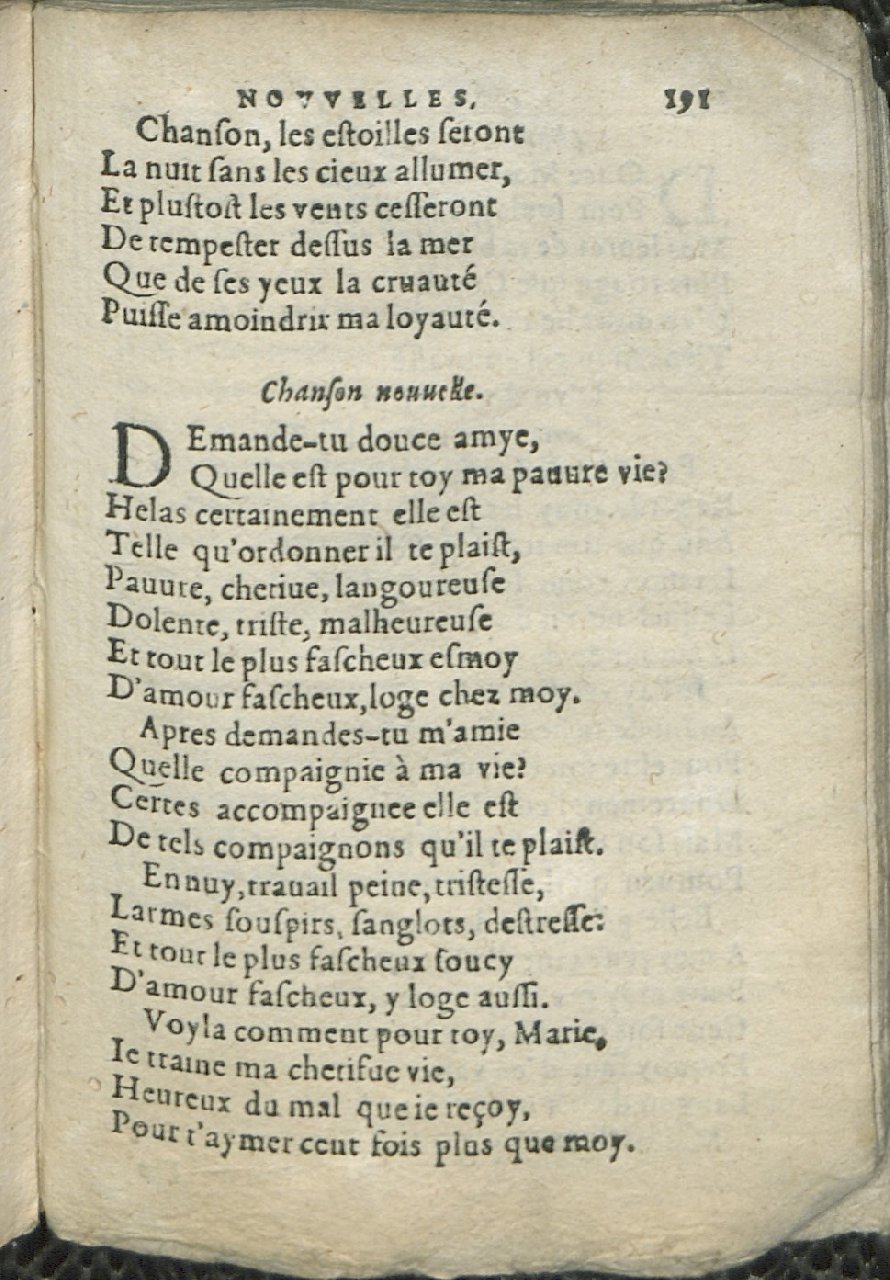 NOVVELLES, 191
Chanſon, les eſtoilles ſeront
La nuit ſans les cieux allumer,
Et pluſtoſt les vents ceſſeront
De tempeſter deſſus la mer
Que de ſes yeux la cruauté
Puiſſe amoindrir ma loyauté.
Chanſon nouuelle.
DEmande-tu douce amye,
Quelle eſt pour toy ma pauure vie?
Helas certainement elle eſt
Telle qu'ordonner il te plaiſt,
Pauure, chetiue, langoureuſe
Dolente, triſte, malheureuſe
Et tout le plus faſcheux eſmoy
D'amour faſcheux, loge chez moy.
Apres demandes-tu m'amie
Quelle compaignie à ma vie?
Certes accompaignee elle eſt
De tels compaignons qu'il te plaiſt.
Ennuy, trauail peine, triſteſſe,
Larmes ſouſpirs, ſanglots, deſtreſſe:
Et tout le plus faſcheux ſoucy
D'amour faſcheux, y loge auſſi.
Voyla comment pour toy, Marie,
Ie traine ma chetifue vie,
Heureux du mal que ie reçoy,
Pour t'aymer cent fois plus que moy.